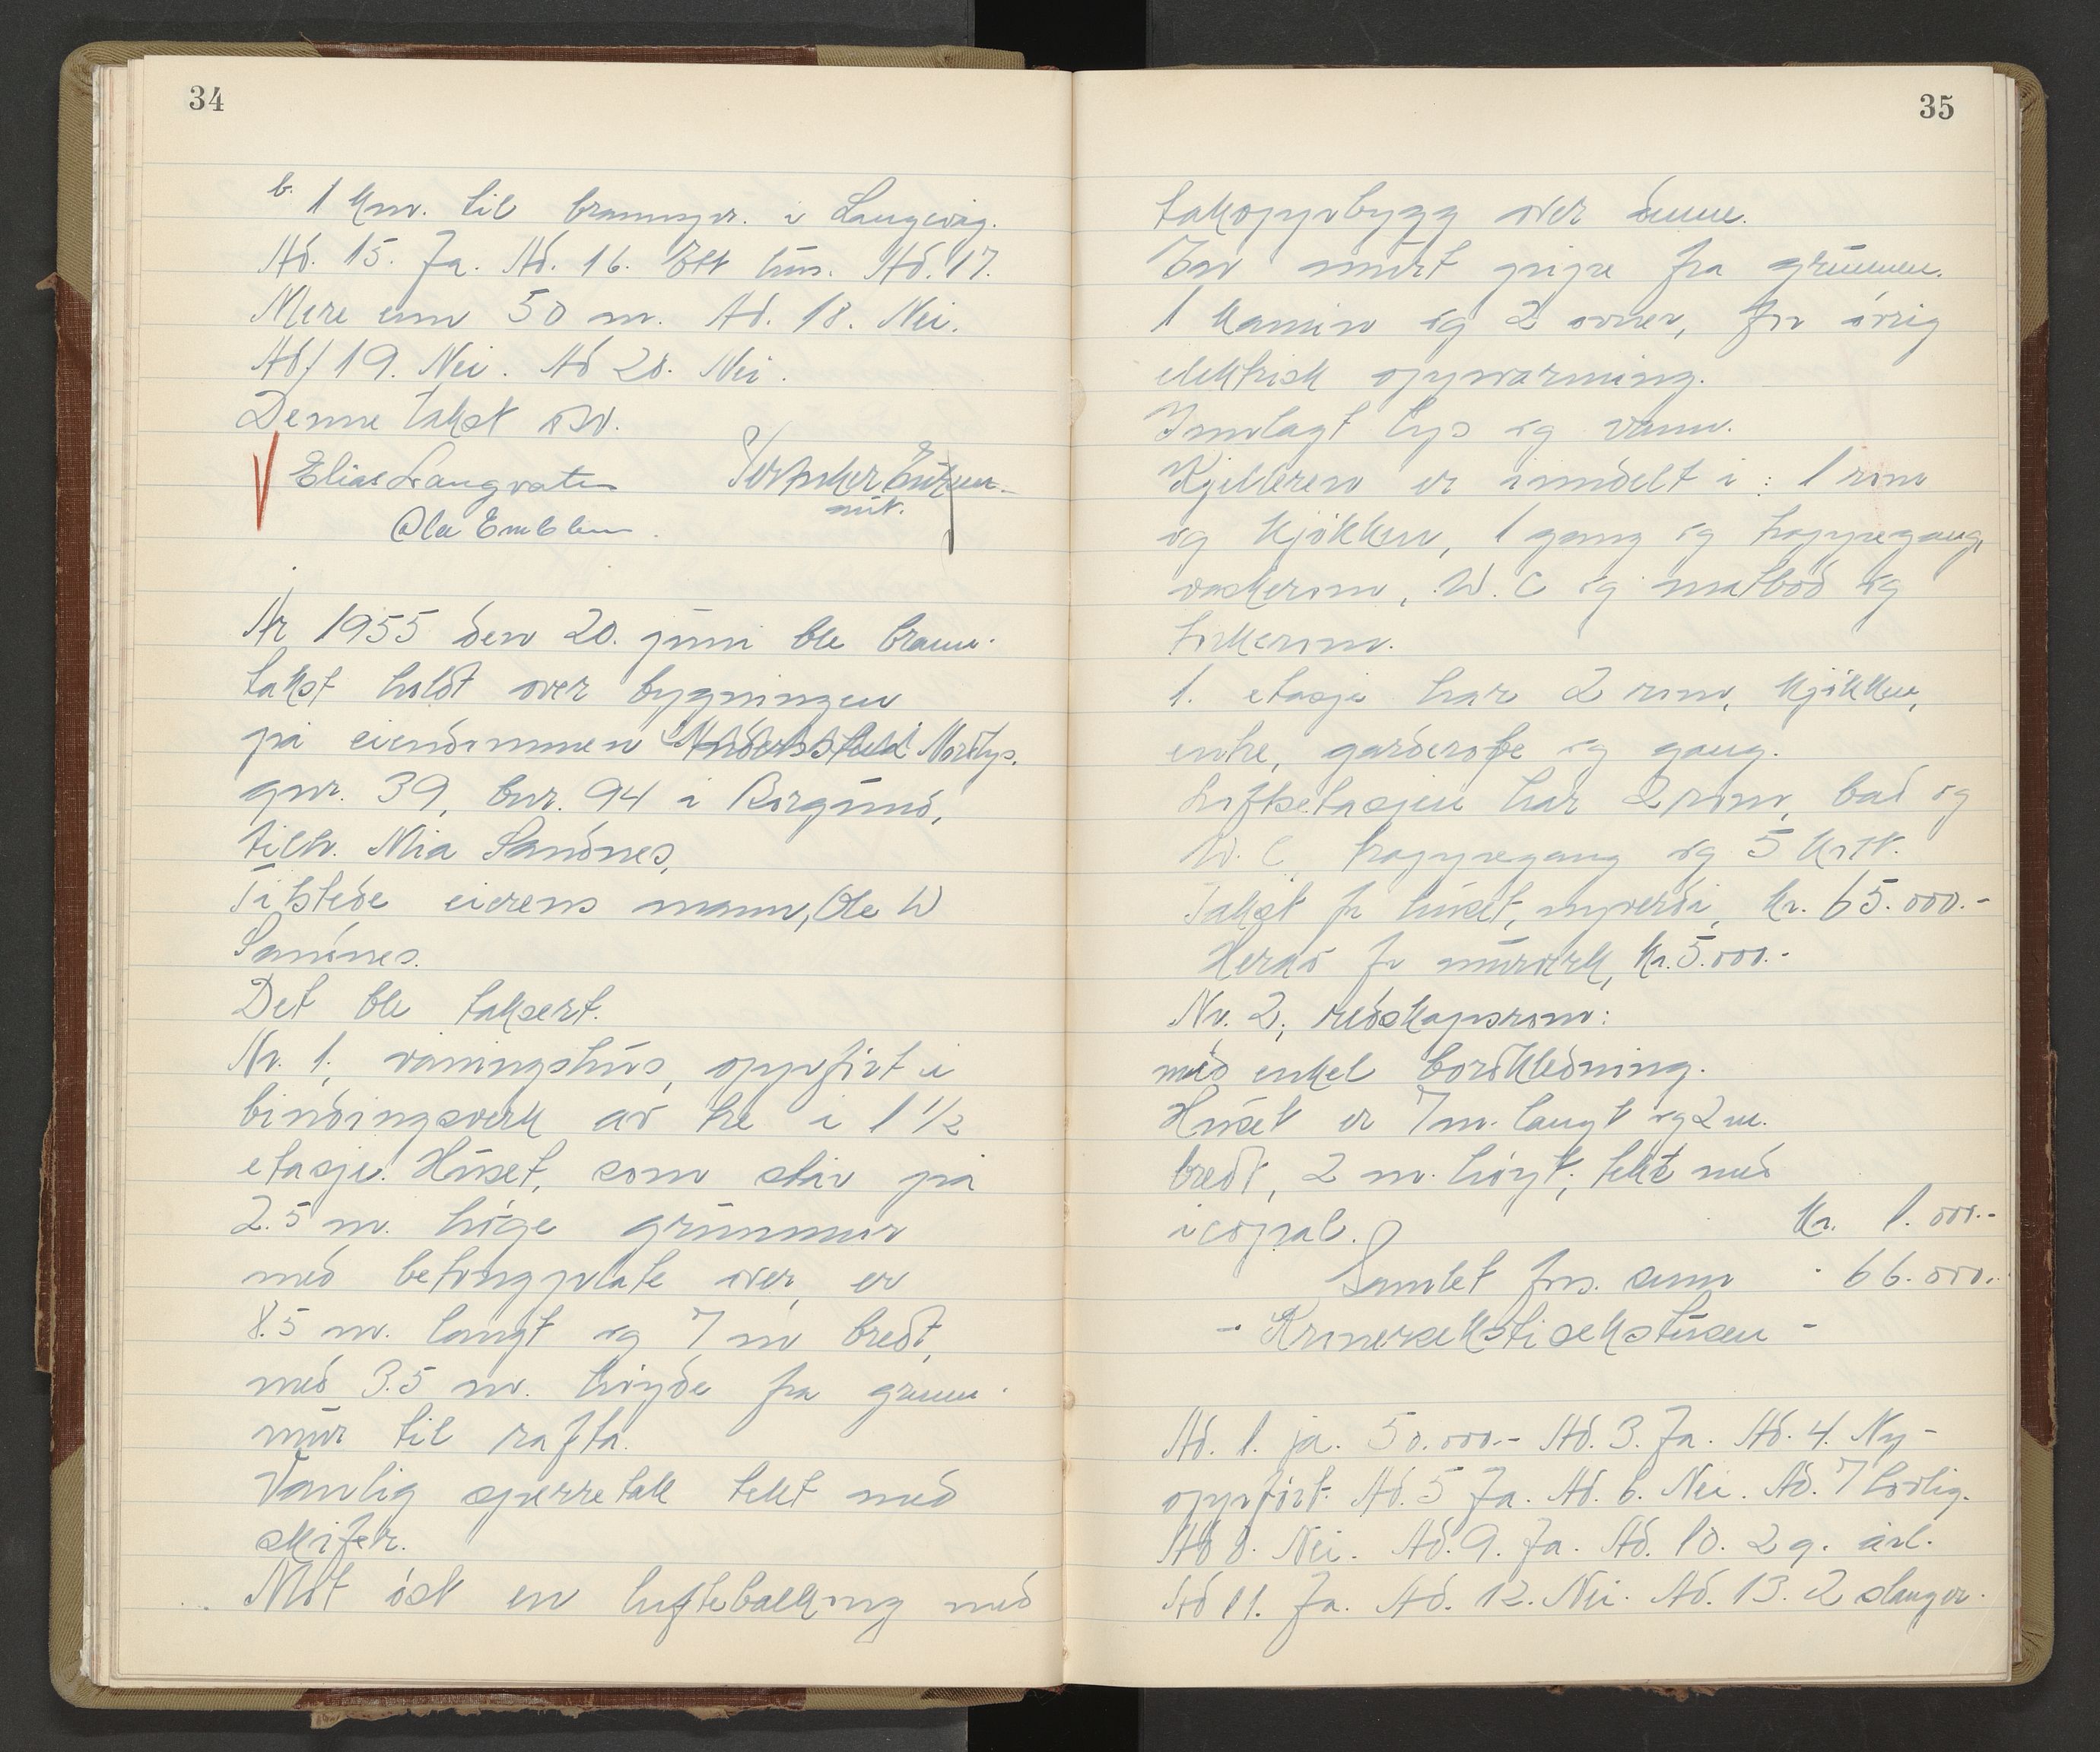 34
b. 1 km. til brannspr. i Langevåg.
Ad. 15. Ja. Ad. 16. Ett hus. Ad. 17.
Mere enn 50 m. Ad. 18. Nei.
Ad/ 19. Nei. Ad 20. Nei.
Denne takst osv.
Elias Langvatn
Ola Emblem
År 1955 den 20. juni ble brann-
takst holdt over bygningen
på eiendommen Nordlys.
gnr. 39, bnr. 94 i Borgund,
tilh. Mia Sandnes,
Tilstede eierens mann, Ole W
Sandnes.
Det ble taksert.
Nr. 1, våningshus, oppført i
bindingsverk av tre i 1 1/2
etasje. Huset, som står på
2.5 m. høge grunnmur
med betongplate over, er
8.5 m. langt og 7 m bredt,
med 3.5 m. høyde fra grunn-
mur til rafta.
Vanlig sperretak tekt med
skifer.
Mot øst en luftebalkong med
35
takoppbygg over denne.
Em murt pipe fra grunnen.
1 kamin og 2 ovner, for øvrig
elektrisk oppvarming.
Innlagt lys og vann.
Kjelleren er inndelt i: 1 rom
og kjøkken, 1 gang og trappegang,
vaskerom, W.C og matbod og
tørkerom.
1. etasje har 2 rom, kjøkken,
entre, garderobe og gang.
Loftsetasjen har 2 rom, bad og
W.C, trappegang og 5 kott.
Takst for huset, nyverdi, kr. 65.000.-
Herav for murverk, kr. 5.000.-
Nr. 2, redskapsrom:
med enkel bordkledning.
Huset er 7 m. langt og 2 m.
bredt, 2 m. høyt, tekt med
icopal. kr. 1.000.-
Samlet fors. sum - 66.000.-
- Kronersekstisekstusen -
Ad. 1. ja. 50.000.- Ad. 3. Ja. Ad. 4. Ny-
oppført. Ad. 5 Ja. Ad. 6. Nei. Ad. 7 lovlig.
Ad 8. Nei. Ad. 9. Ja. Ad. 10. 2 g. årl.
Ad 11. Ja. Ad. 12. Nei. Ad. 13. 2 slanger.